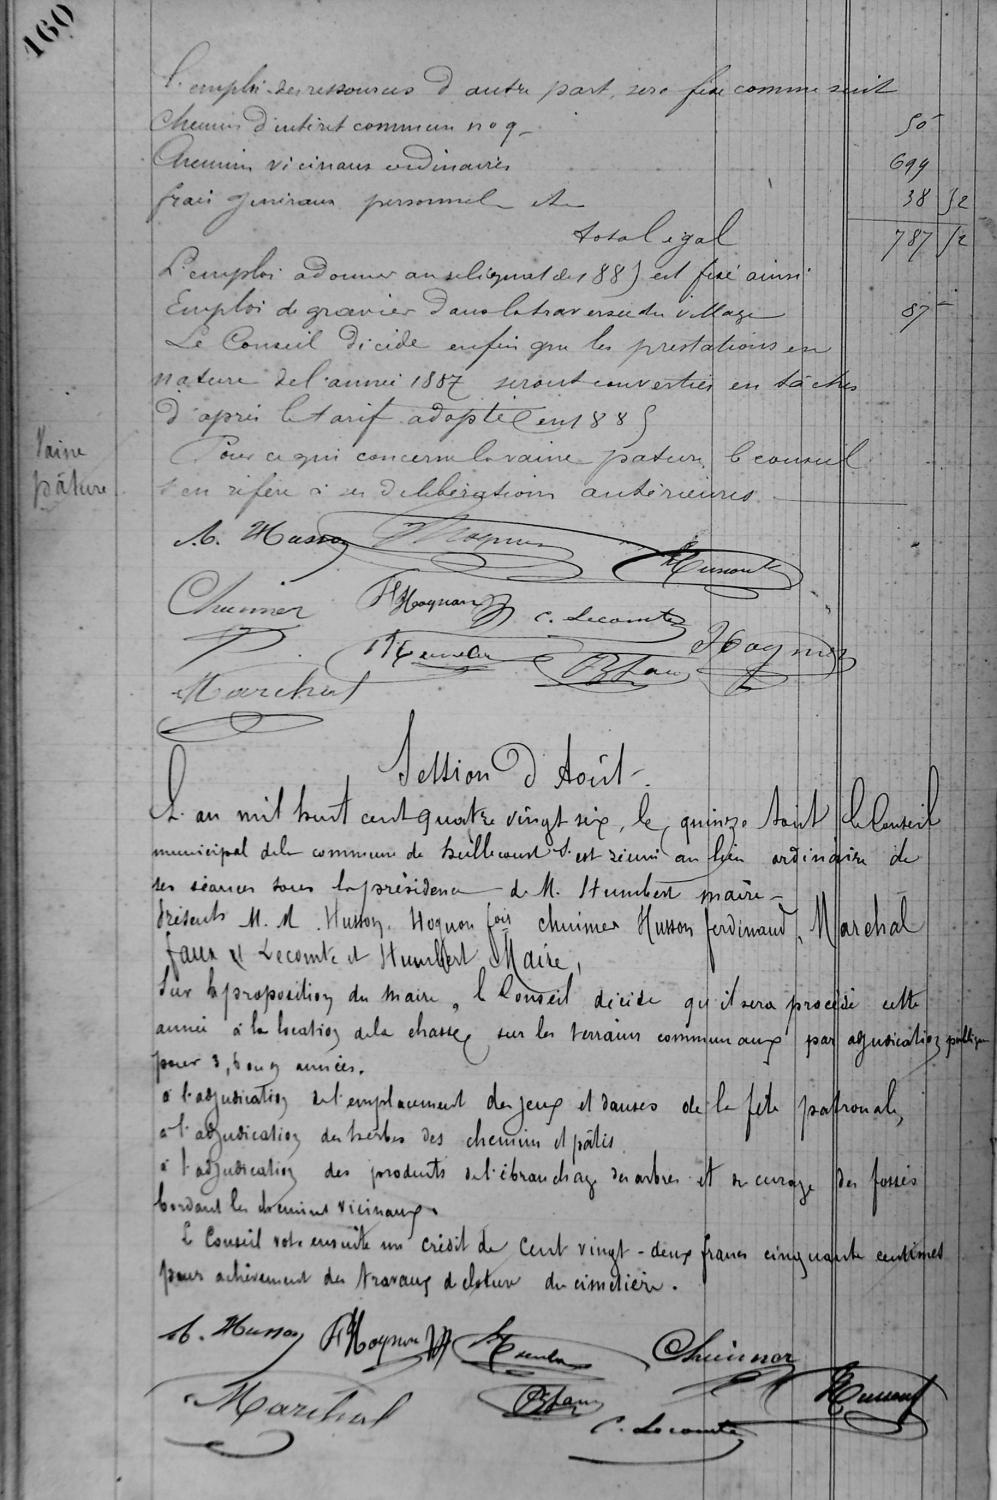 160
L'emploi des ressources d'autre part sera fixé comme suit
Chemin d'intérêt commun no 9 50
Chemins vicinaux ordinaires 699
frais généraux personnel etc 38 52
total égal 787 52
L'emploi à donner au reliquat de 1885 est fixé ainsi
Emploi de gravier dans la traversée du village 87
Le Conseil décide enfin que les prestations en
nature de l'année 1887 seront converties en tâches
d'après le tarif adopté en 1885
Vaine
pâture
Pour ce qui concerne la vaine pature, le conseil
s'en réfère à ses délibérations antérieures
A. Husson Hognon
Chuinier F Hognon C. Lecomte Hognon
Humbert
Marchal
Session d'Août.
L'an mil huit cent quatre vingt six, le quinze Août le Conseil
municipal de la commune de s'est réuni au lieu ordinaire de
ses séances sous la présidence de M. Humbert maire
Présents M. M. Husson, Hognon fois Chuinier Husson ferdinand, Marchal
faux Lecomte et Humbert Maire,
Sur la proposition du maire, le Conseil décide qu'il sera procédé cette
année à la location de la chasse sur les terrains communaux par adjudication publique
pour 3, 6 ou 9 années.
à l'adjudication de l'emplacement des jeux et danses de la fête patronale,
à l'adjudication des herbes des chemins et pâtis
à l'adjudication des produits de l'ébranchage des arbres et du curage des fossés
bordant les chemins vicinaux.
Le Conseil vote ensuite un crédit de Cent vingt-deux francs cinquante centimes
pour achèvement des travaux de cloture du cimetière.
A. Husson F Hognon Humbert Chuinier
Marchal C. Lecomte